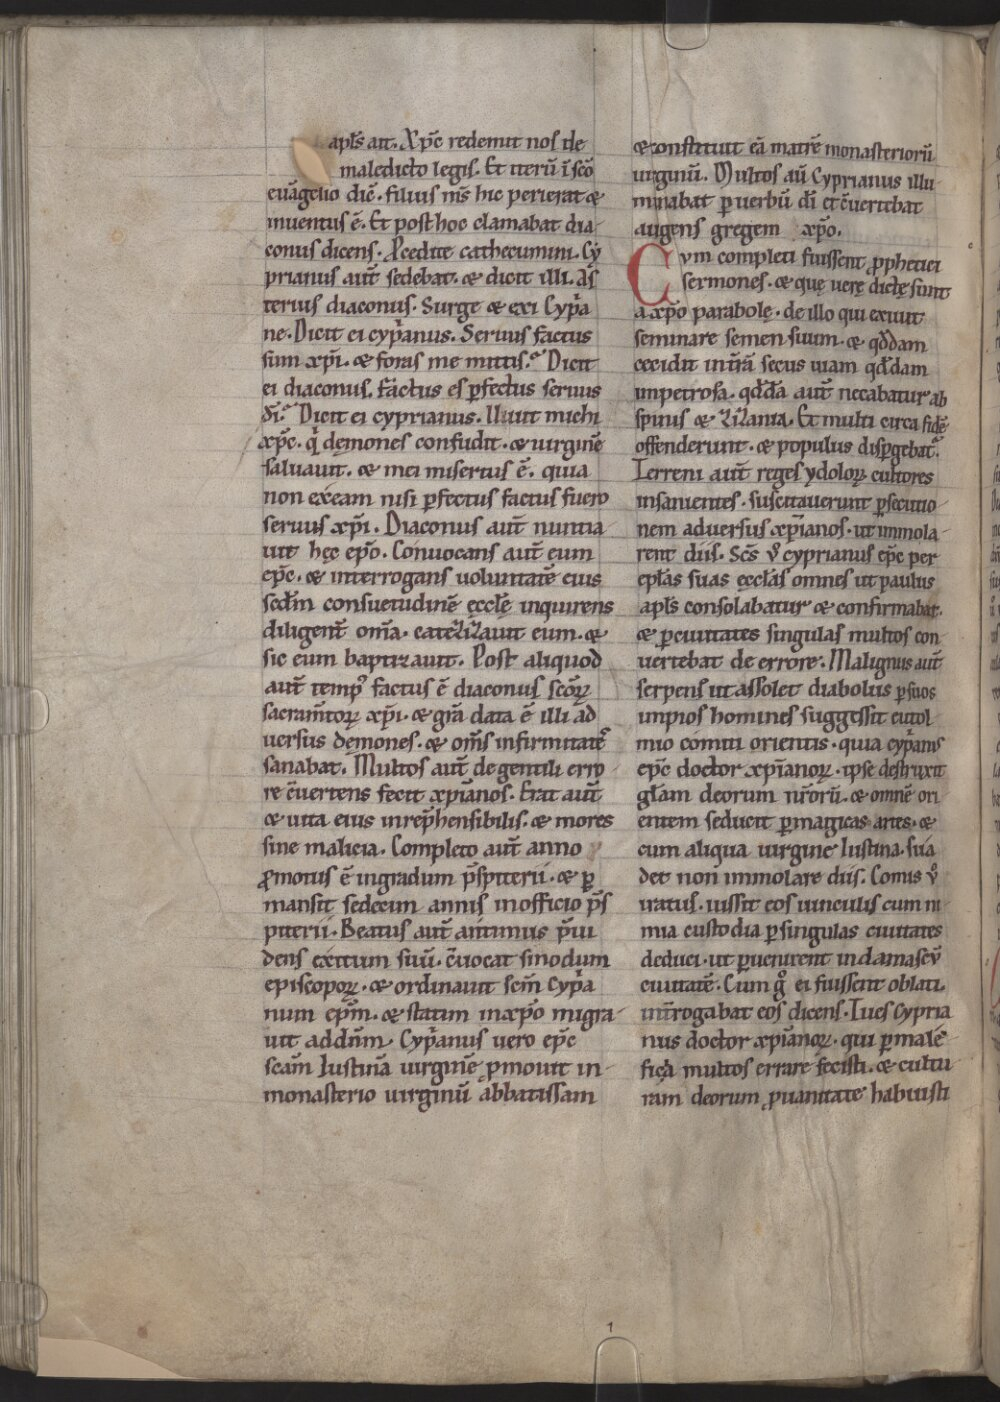 apl̄s ait. Xp̄c redemit nos de
maledicto legis. Et iterū ī sc̄o
euāgelio dic̄. filius m̄s hic perierat &
inuentus ē. Et post hoc clamabat dia
conus dicens. Procedite cathecumini. Cy
prianus aut̄ sedebat. & dicit illi. As
terius diaconus. Surge & exi Cyp̃a
ne. Dicit ei cyp̃anus. Seruus factus
sum xp̄i. & foras me mittis. Dicit
ei diaconus. Factus es ꝑfectus seruus
dī. Dicit ei cyprianus. Viuit michi
xp̄c. q̇ demones confudit. & uirginē
saluauit. & mei misertus ē. quia
non exeam nisi ꝑfectus factus fuero
seruus xp̄i. Diaconus aut̄ nuntia
uit hęc ep̄o. Conuocans aut̄ eum
ep̄c. & interrogans uoluntatē eius
scd̄m consuetudinē ęccłę inquirens
diligent̄ om̄a. catezizauit eum. &
sic eum baptizauit. Post aliquod
aut̄ temp᷒ factus ē diaconus sc̄oꝝ
sacram̄toꝝ xp̄i. & gr̄a data ē illi ad
uersus demones. & om̄s infirmitatē
sanabat. Multos aut̄ de gentili erro
re c̄uertens fecit xp̄ianos. Erat aut̄
& uita eius inrep̄hensibilis. & mores
sine malicia. Completo aut̄ anno
ꝓmotus ē in gradum p̄sƀiterii. & ꝑ
mansit sedecim annis in officio p̄s
ƀiterii. Beatus aut̄ antimus p̄ui
dens exitum suū. c̄uocat sinodum
episcopoꝝ. & ordinauit sc̄m Cyp̃a
num ep̄m. & statim in xp̄o migra
uit ad dn̄m. Cyp̃anus uero ep̄c
sc̄am Iustinā uirginē ꝓmouit in
monasterio uirginū abbatissam
& constituit eā matrē monasteriorū
uirginū. Multos aū Cyprianus illu
minabat ꝑ uerbū dī et c̄uertebat
augens gregem xp̄o.
Cvm completi fuissent ꝓphetici
sermones. & quę uerę dictę sunt
a xp̄o parabolę. de illo qui exiuit
seminare semen suum. & qd̄dam
cecidit in t̄rā secus uiam qd̄dam
in petrosa. qd̄dā aut̄ necabatur ab
spinis & zizania. Et multi circa fidē
offenderunt. & populus dispgebat᷑.
Terreni aut̄ reges ydoloꝝ cultores
insanientes. suscitauerunt ꝑsecutio
nem aduersus xp̄ianos. ut immola
rent diis. Sc̄s v̊ cyprianus ep̄c per
epl̄as suas ęccl̄as omnes ut paulus
apl̄s consolabatur & confirmabat.
& ꝑ ciuitates singulas multos con
uertebat de errore. Malignus aut̄
serpens ut assolet diabolus ꝑ suos
impios homines suggessit eutol
mio comiti orientis. quia cyp̃anus
ep̄c doctor xp̄ianoꝝ. ipse destruxit
gl̄am deorum nr̄orū. & omnē ori
entem seducit ꝑ magicas artes. &
cum aliqua uirgine Iustina. sua
det non immolare diis. Comis v̊
iratus. iussit eos uinculis cum ni
mia custodia ꝑ singulas ciuitates
deduci. ut ꝑuenirent in damascēn̄
ciuitatē. Cum g̊ ei fuissent oblati.
int̄rogabat eos dicens. Tu es Cypria
nus doctor xp̄ianoꝝ. qui ꝑ male
fic̄a multos errare fecisti. & cultu
ram deorum ꝓ uanitate habuisti
1